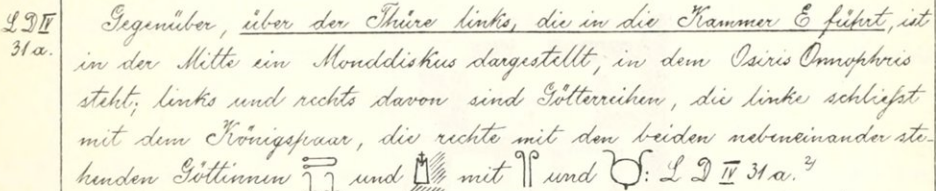 L D IV
31 a.
Gegenüber, über der Thüre links, die in die Kammer E führt, ist
in der Mitte ein Monddiskus dargestellt, in dem Osiris Onnophris
steht; links und rechts davon sind Götterreihen, die linke schließt
mit dem Königspaar, die rechte mit den beiden nebeneinander ste-
henden Göttinnen und mit und : L D IV 31 a. 2)